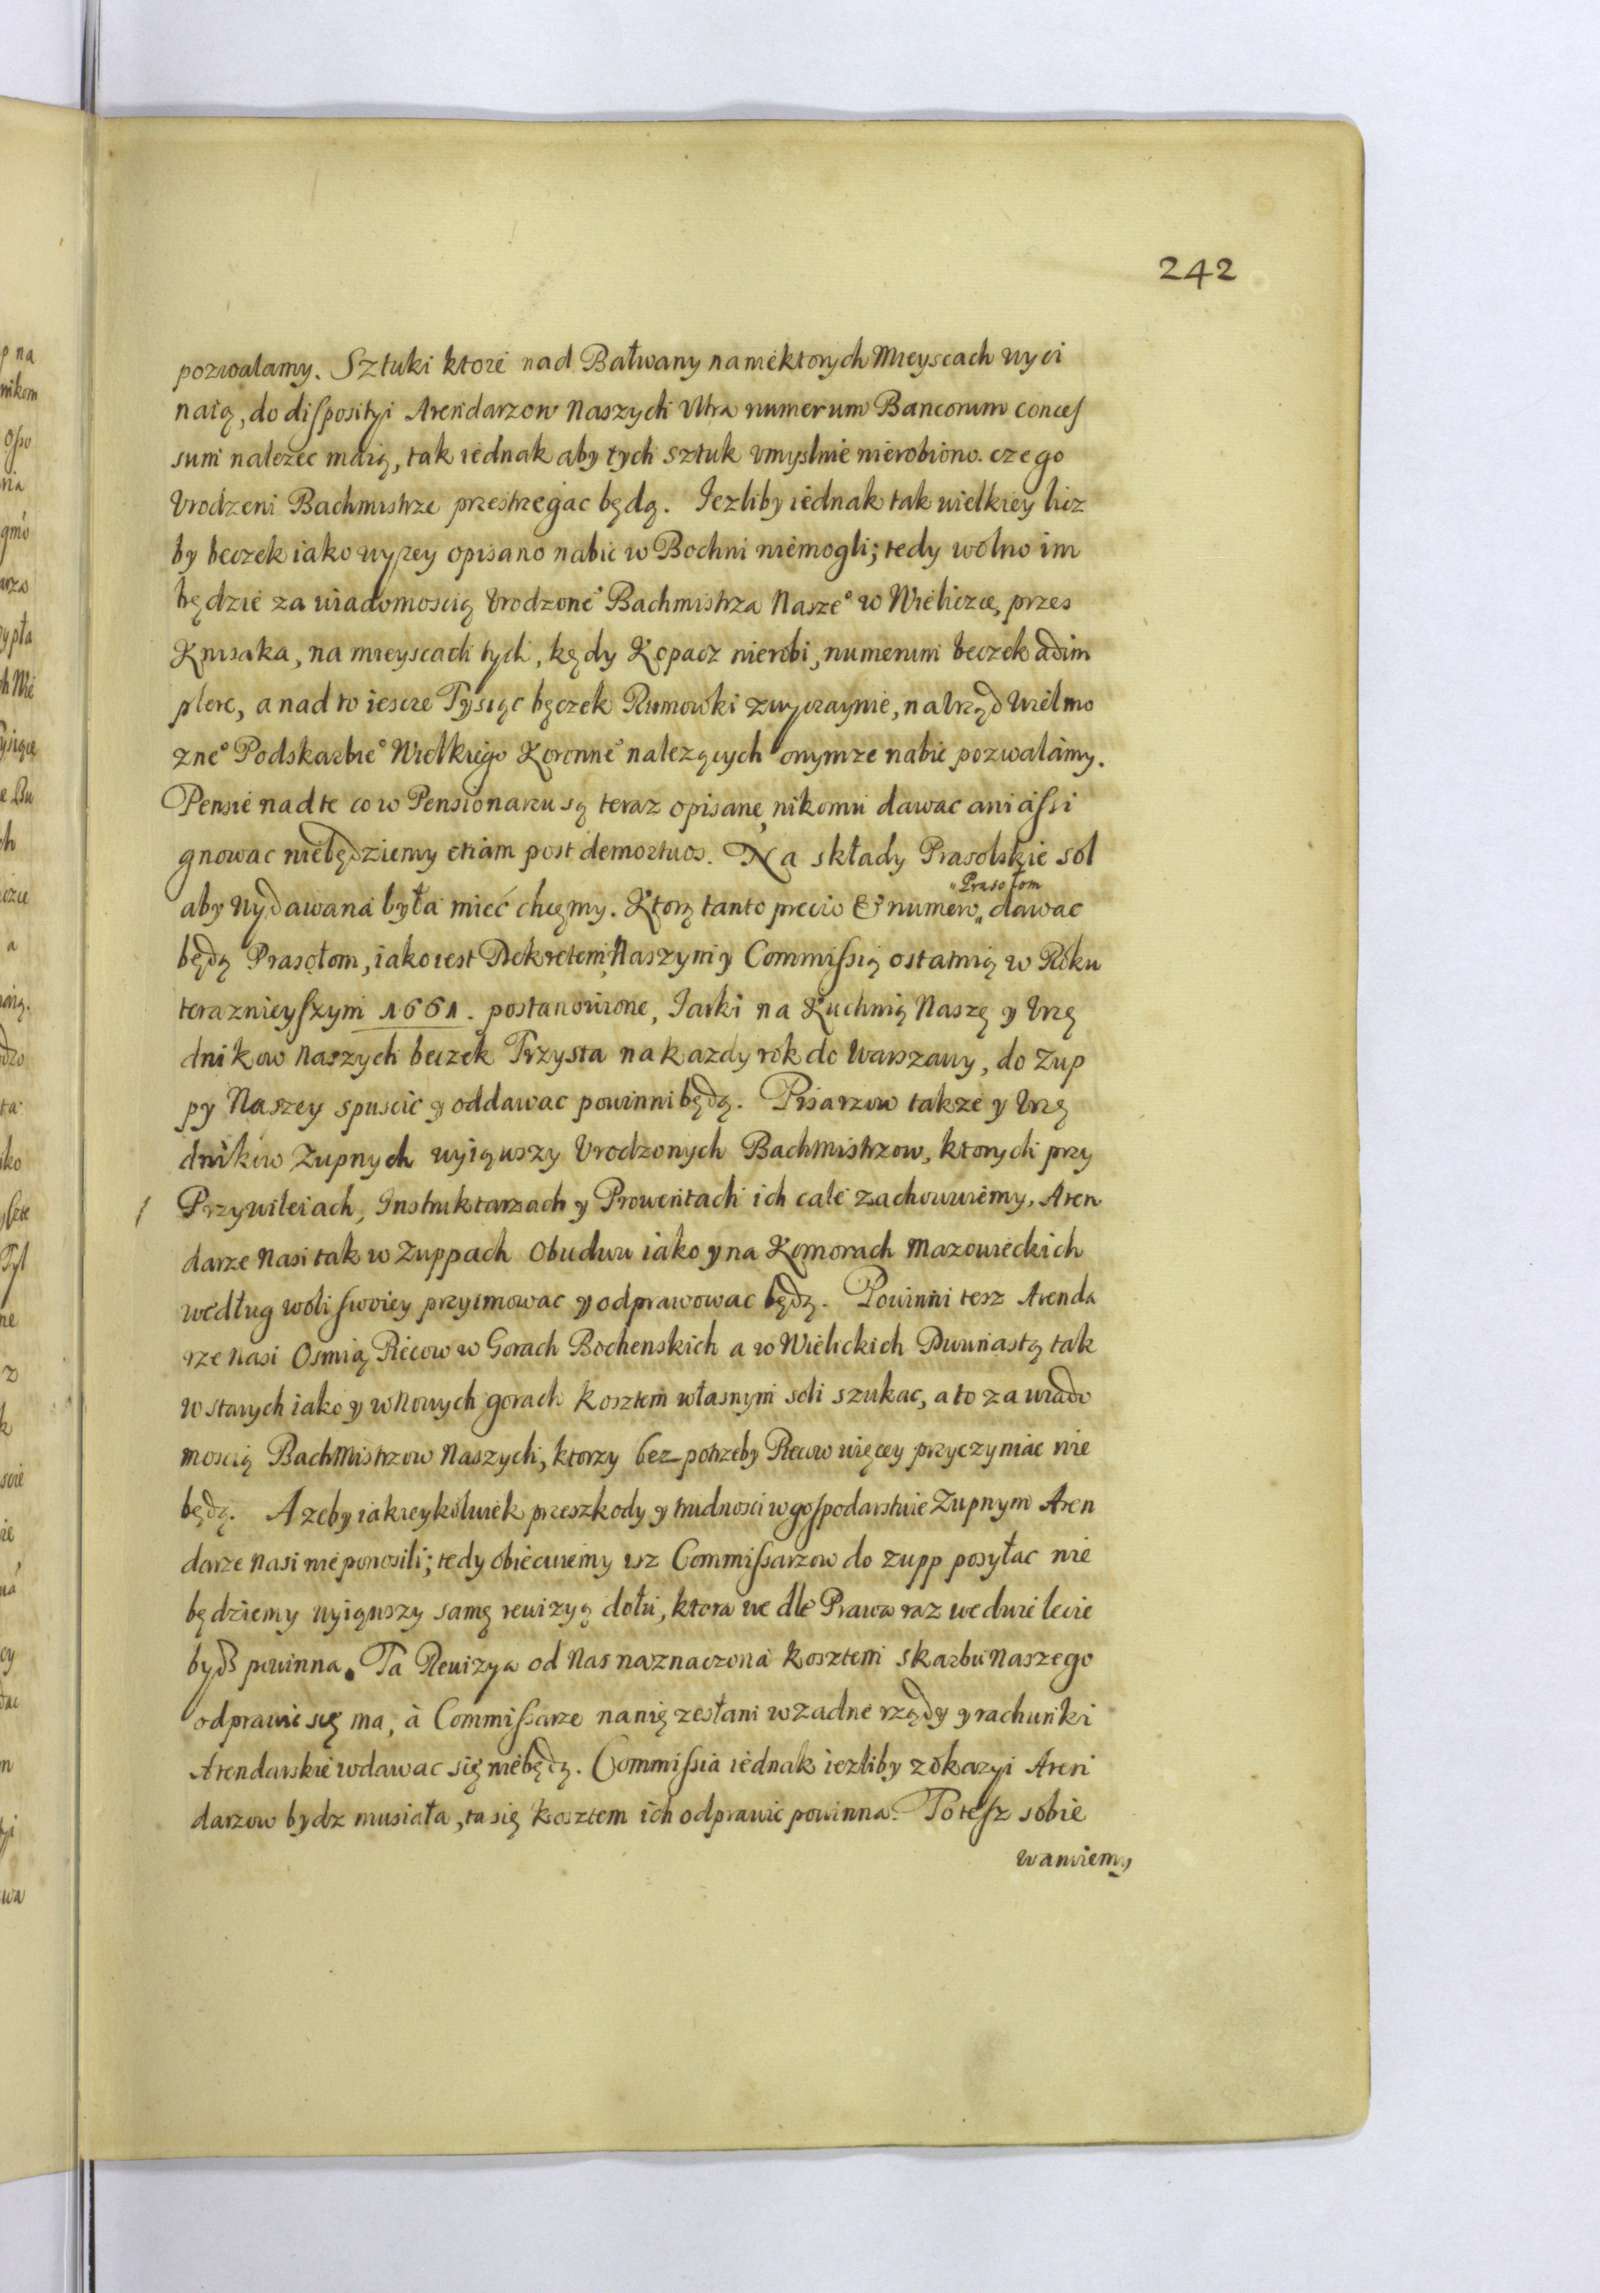 242
pozwalamy. Sztuki ktore nad Bałwany naniektorych Mieyscach wyci
naią, do disposityi Arendarzow Naszych Ultra numerum Bancorum conces
sum nalezec maią, tak iednak aby tych sztuk vmyslnie nierobiono. czego
Vrodzeni Bachmistrze przestrzegac będą. Iezliby iednak tak wielkiey licz
by beczek iako wyzey opisano nabic w Bochni niemogli; tedy wolno im
będzie za wiadomoscią Vrodzone° Bachmistrza Nasze° w Wieliczce, przes
Kruszaka, na mieyscach tych, kędy Kopacz nierobi, numerum beczek adim
plere, a nad to iescze Tysiąc bęczek Rumowki zwyczaynie, na Vrząd Wielmo
zne° Podskarbie° Wielkiego Koronne° nalezących onymze nabic pozwalamy.
Pensie nad te co w Pensionarzu są teraz opisane, nikomu dawac ani assi
gnowac niebędziemy etiam post demortuos. Na składy Prasolskie sol
aby wydawana była mieć chcemy. Ktorą tanto precio & numero „ dawac
„ Prasołom
będą Prasołom, iako iest Dekretem Naszym y Commissią ostatnią w Roku
teraznieyszym 1661. postanowione, Iarki na Kuchnią Naszę y Vrzę
dnikow Naszych beczek Trzysta na kazdy rok do Warszawy, do Zup
py Naszey spuscic y oddawac powinni będą. Pisarzow takze y Vrzę
dnikow Zupnych wyiąwszy Vrodzonych Bachmistrzow, ktorych przy
Przywileiach, Instruktarzach y Prowentach ich cale zachowuiemy, Aren
darze Nasi tak w Zuppach Obudwu iako y na Komorach Mazowieckich
według woli swoiey przyimowac y odprawowac będą. Powinni tesz Arenda
rze Nasi Osmią Piecow w Gorach Bochenskich a w Wielickich Dwunastą tak
w starych iako y w Nowych gorach kosztem własnym soli szukac, a to za wiado
moscią Bachmistrzow Naszych, ktorzy bez potrzeby Piecow więcey przyczyniac nie
będą. A zeby iakieykolwiek przeszkody y trudnosci w gospodarstwie Zupnym Aren
darze Nasi nie ponosili; tedy obiecuiemy isz Commissarzow do zupp posyłac nie
będziemy wyiąwszy samę rewizyą dołu, ktora we dle Prawa raz we dwie lecie
bydz powinna. Ta Rewizya od Nas naznaczona kosztem skarbu Naszego
odprawic się ma, à Commissarze na nię zesłani w zadne rządy y rachunki
Arendarskie wdawac się niebędą. Commissia iednak iezliby z okazyi Aren
darzow bydz musiała, ta się kosztem ich odprawic powinna. To tesz sobie
waruiemy